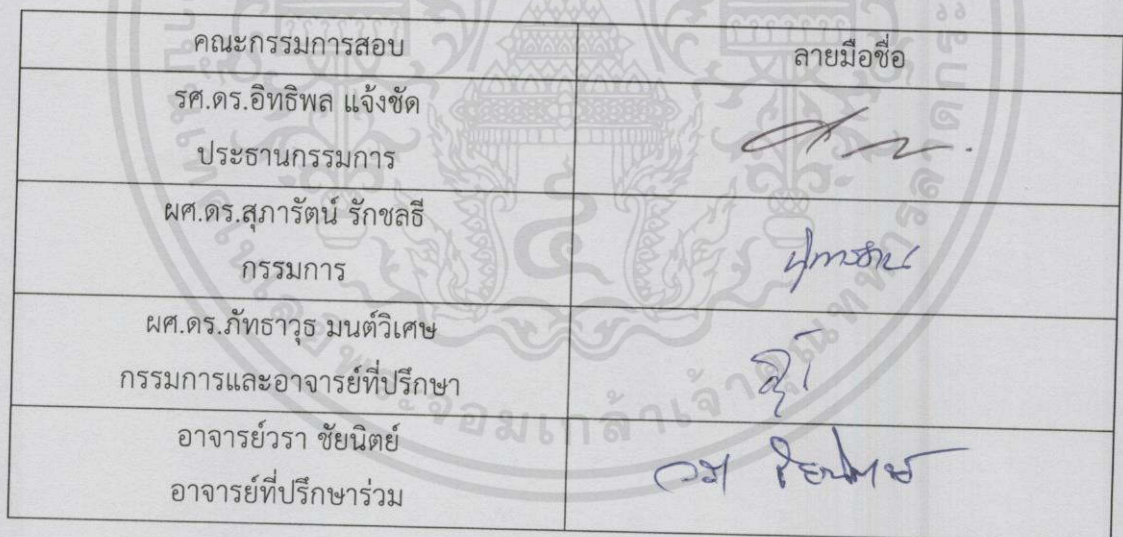 คณะกรรมการสอบ
ลายมือชื่อ
รศ.ดร.อิทธิพล แจ้งชัด
ประธานกรรมการ
ผศ.ดร.สุภารัตน์ รักชลธี
กรรมการ
ผศ.ดร.ภัทธาวุธ มนต์วิเศษ
กรรมการและอาจารย์ที่ปรึกษา
อาจารย์วรา ชัยนิตย์
อาจารย์ที่ปรึกษาร่วม